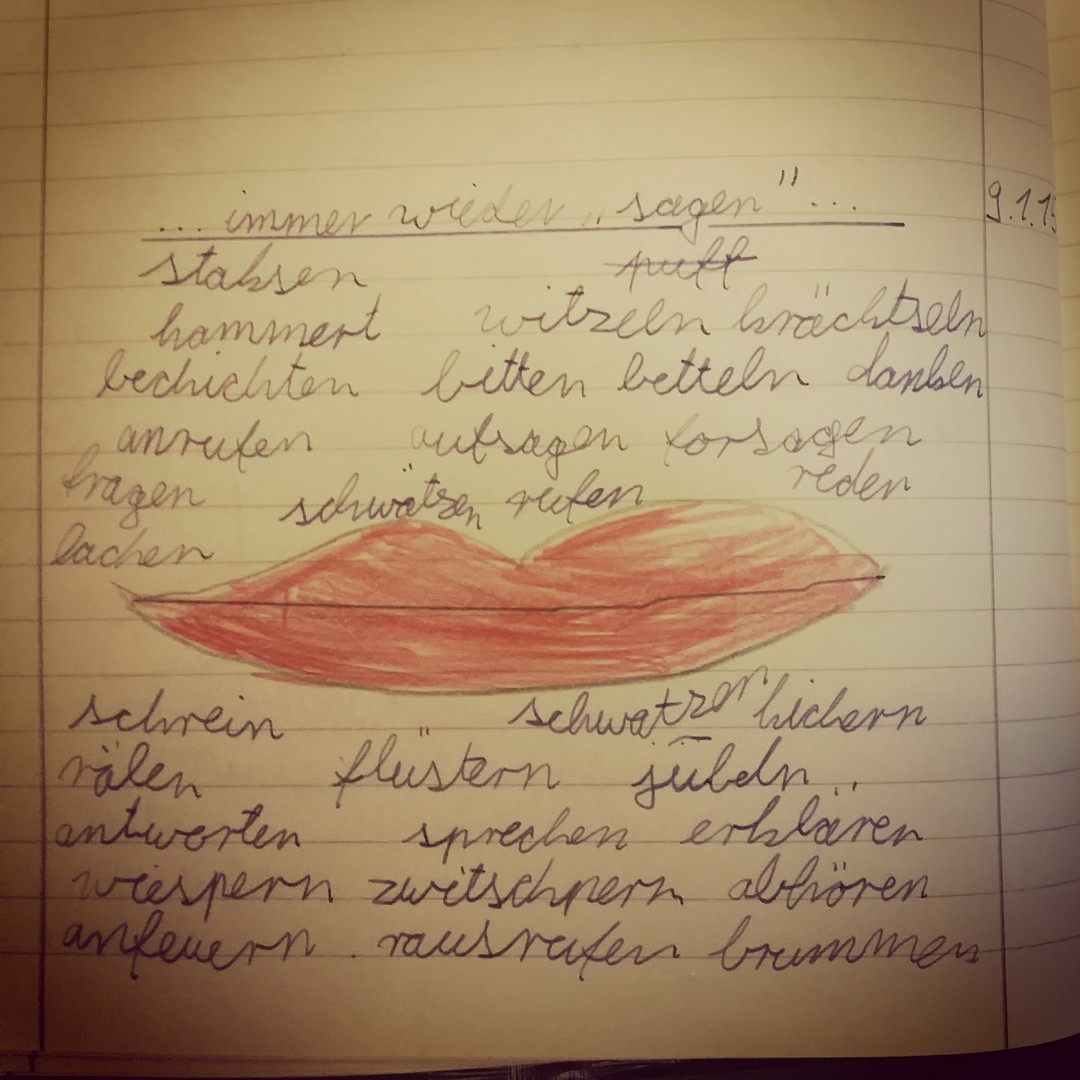 ... immer wieder „sagen" ... 9.1.15
staksen puff
hammert witzeln krächtseln
bechichten bitten betteln danken
anrufen aufsagen forsagen
fragen schwätzen rufen reden
lachen
schrein schwatzen kichern
rälen flüstern jubeln
antworten sprechen erklären
wiespern zwitschpern abhören
anfeuern . rausrufen brummen